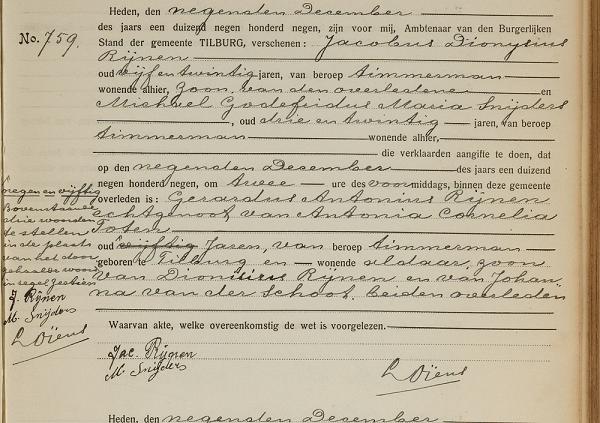 Heden, den negensten December
des jaars een duizend negen honderd negen, zijn voor mij, Ambtenaar van den Burgerlijken
No. 759.
Stand der gemeente TILBURG, verschenen: Jacobus Dionysius
Rijnen
oud vijf en twintig jaren, van beroep timmerman
wonende alhier, zoon van den overledene en
Michael Godefridus Maria Snijders
, oud drie en twintig jaren, van beroep
timmerman wonende alhier,
die verklaarden aangifte te doen, dat
op den negensten December des jaars een duizend
negen honderd negen, om twee ure des voormiddags, binnen deze gemeente
overleden is: Gerardus Antonius Rijnen
echtgenoot van Antonia Cornelia
Toten
oud vijftig Jaren, van beroep timmerman
geboren te Tilburg en wonende aldaar, zoon
van Dionisius Rijnen en van Johan-
na van der Schoot, beiden overleden
Waarvan akte, welke overeenkomstig de wet is voorgelezen.
Jac. Rijnen
M. Snijders
L Oïens
negen en vijftig
Bovenstaande
drie woorden
te stellen
in de plaats
van het door
gehaalde woord
in regel zestien
J. Rijnen
M. Snijders
L Oïens
Heden, den negensten December